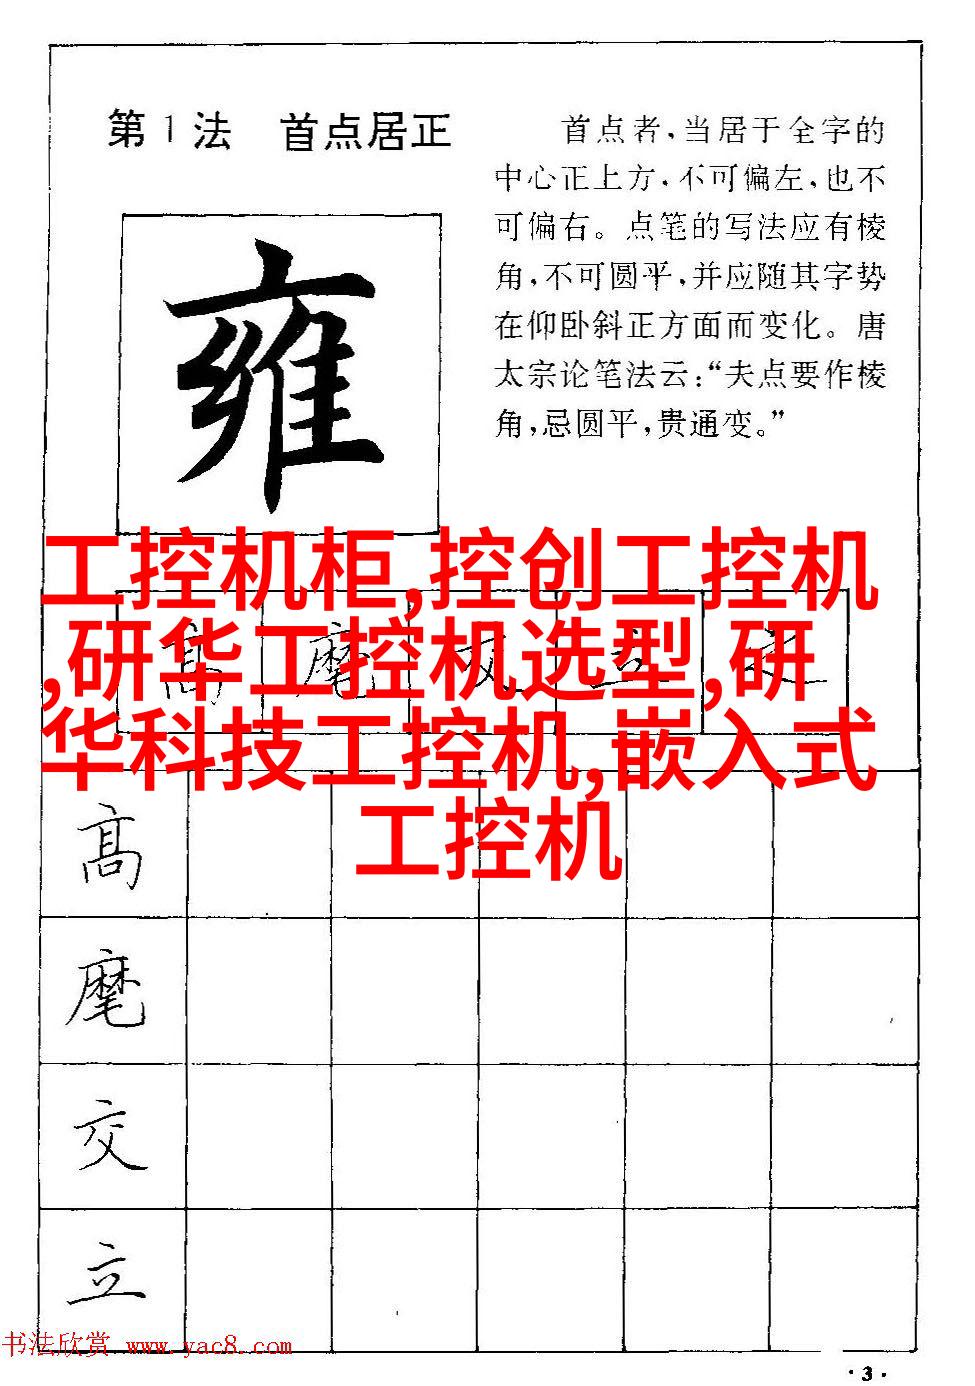 第1法 首点居正
首点者,当居于全字的
中心正上方,不可偏左,也不
可偏右。点笔的写法应有棱
角,不可圆平,并应随其字势
在仰卧斜正方面而变化。唐
太宗论笔法云:“夫点要作棱
角,忌圆平,贵通变。”
雍
工控机柜,控创工控机
,研华工控机选型,研
华科技工控机,嵌入式
工控机
高 麾 交 立
髙
麾
交
立
书法欣赏 www.yac8.com
·3·